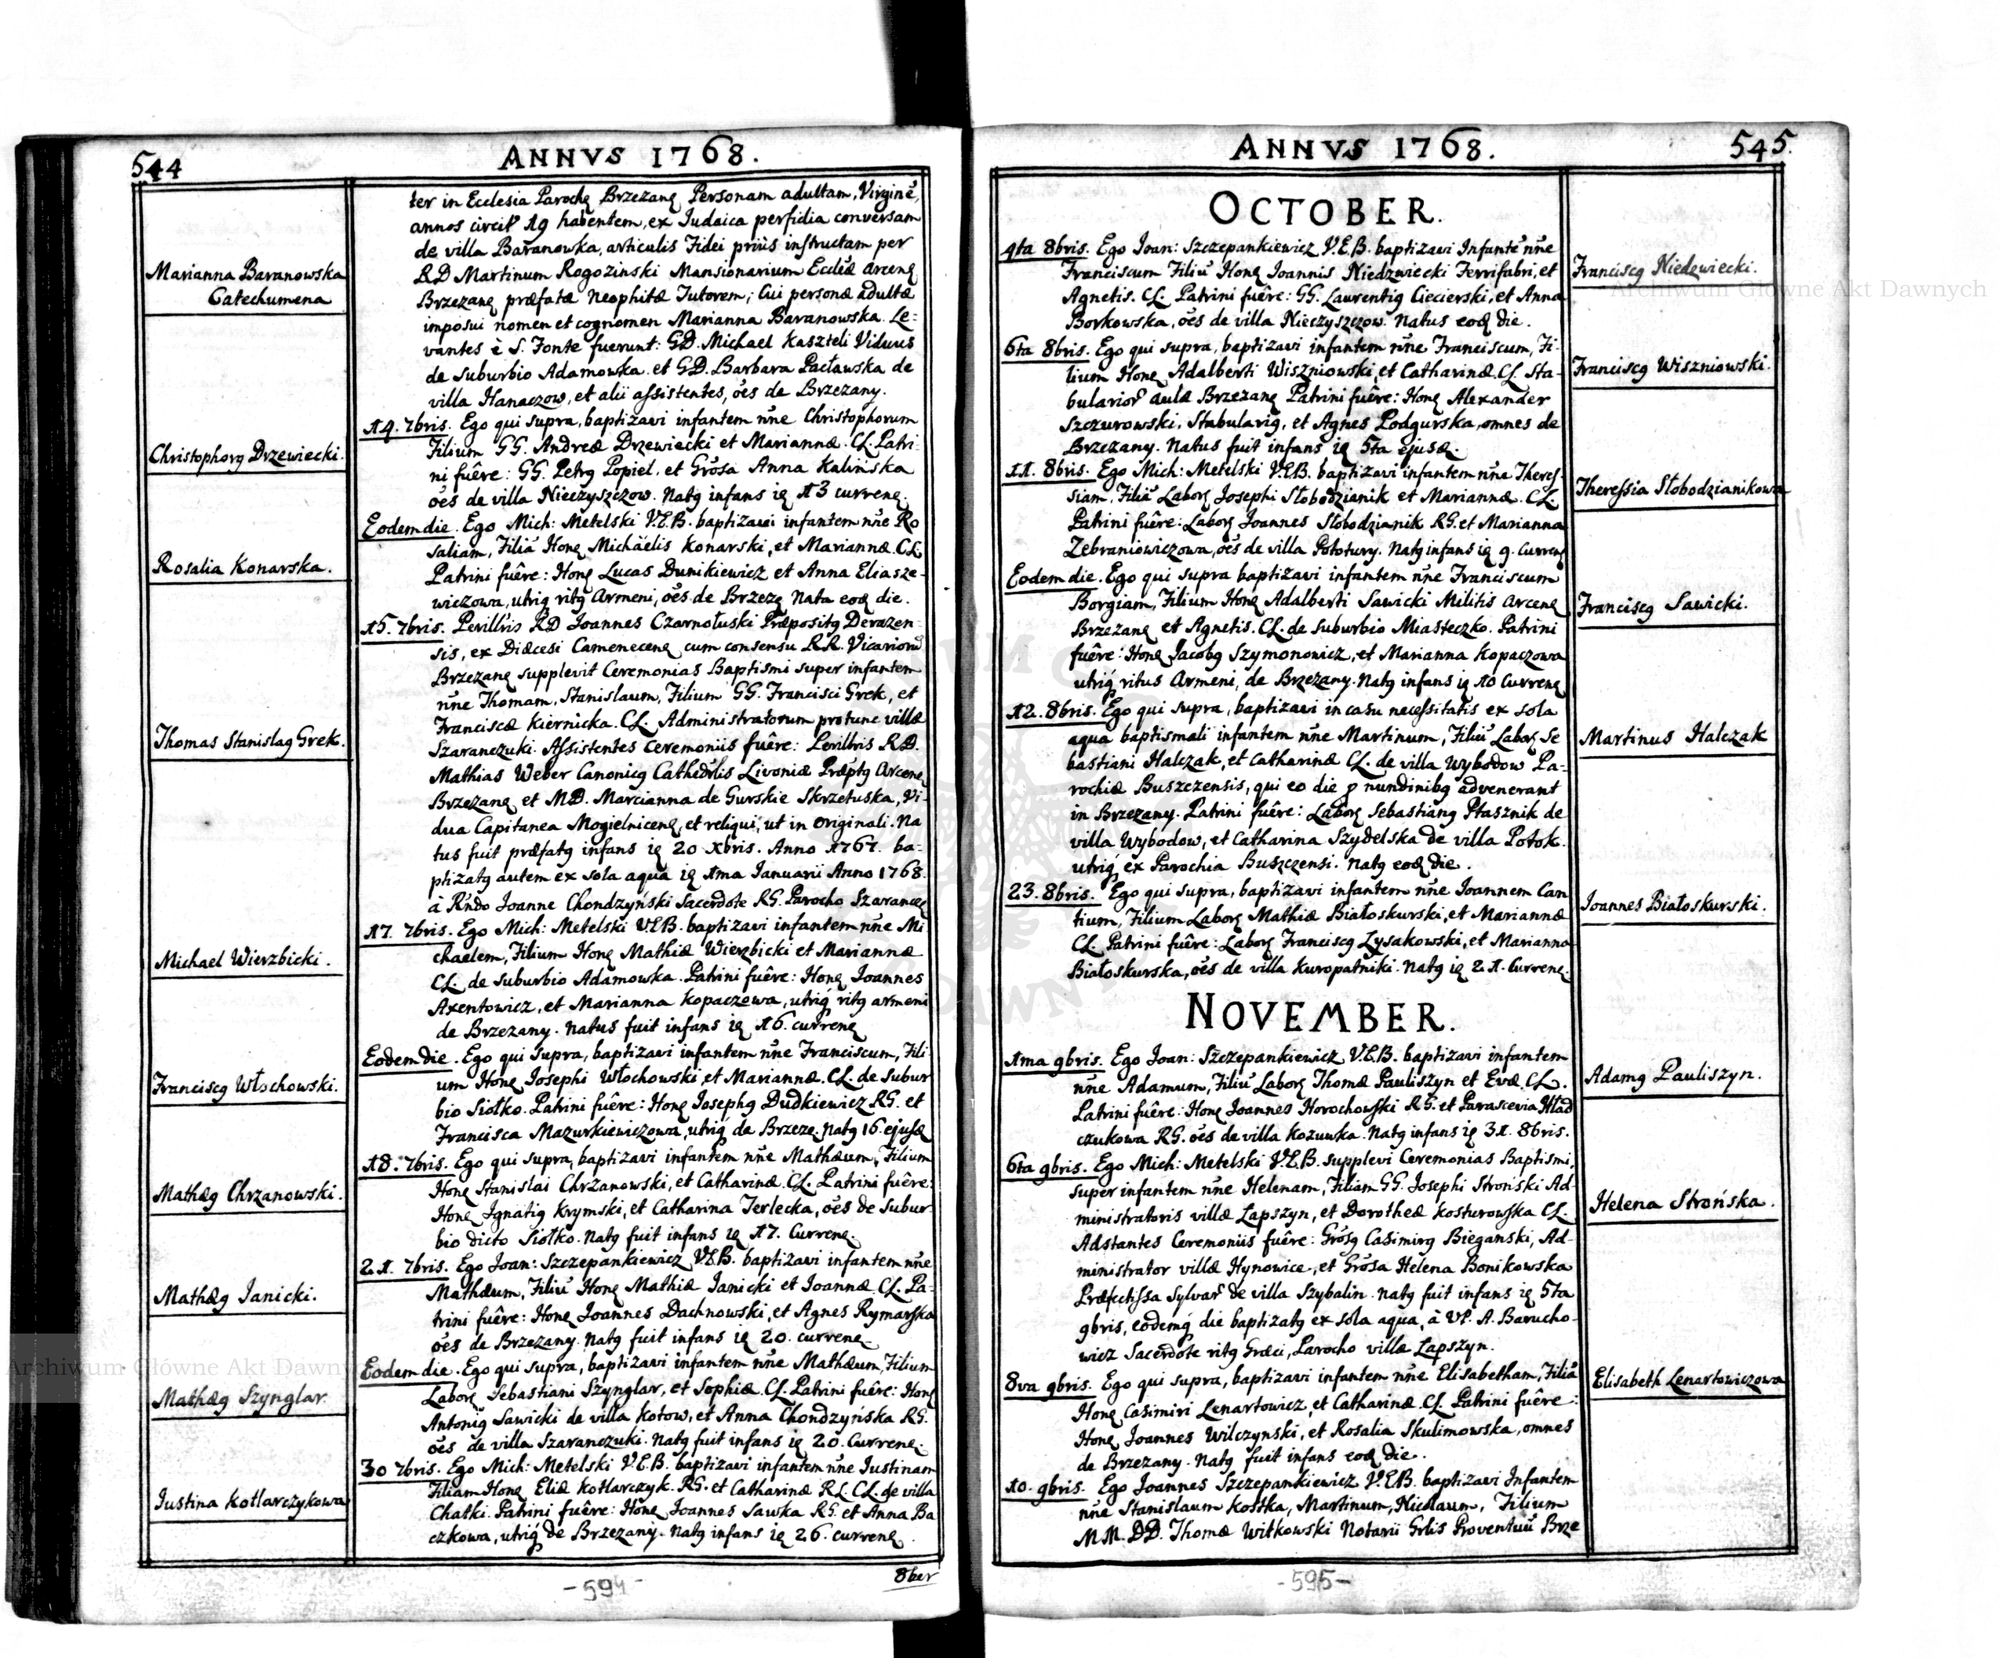 544
ANNVS 1768.
Marianna Baranowska
Catechumena
Christophorꝯ Drzewiecki.
Rosalia Konarska.
Thomas Stanislaꝯ Grek.
Michael Wierzbicki.
Franciscꝯ Włochowski.
Mathæꝯ Chrzanowski.
Mathæꝯ Ianicki.
Mathæꝯ Szynglar.
Iustina Kotlarczykowa
ter in Ecclesia Paroche Brzezane Personam adultam, Virginē,
annos circitr 19 habentem, ex Iudaica perfidia conversam
de villa Baranowka, articulis Fidei priùs instructam per
RD Martinum Rogozinski Mansionarium Ecclæ Arcene
Brzezane præfatæ Neophitæ Tutorem; Cui personæ adultæ
imposui nomen et cognomen Marianna Baranowska. Le=
vantes è S. Fonte fuerunt: GD. Michael Kaszteli Viduus
de Suburbio Adamowka. et GD. Barbara Pacławska de
villa Hanaczow, et alii assistentes, oes de Brzezany.
14. 7bris. Ego qui supra, baptizavi infantem nne Christophorum
Filium GG. Andreæ Drzewiecki et Mariannæ. CL. Patri-
ni fuêre: GG. Petrꝯ Popiel, et Grosa Anna Kalińska
oes de villa Nieczyszczow. Natꝯ infans ie 13 currene.
Eodem die. Ego Mich: Metelski V.E.B. baptizavi infantem nne Ro
saliam, Filiā Hone Michaëlis Konarski, et Mariannæ. CL
Patrini fuêre: Hone Lucas Dunikiewicz et Anna Eliasze-
wiczowa, utriꝗ ritꝯ Armeni, oes de Brzeze Nata eod die.
15. 7bris. Perillris RD Ioannes Czarnoluski Præpositꝯ Derazen-
sis, ex Diæcesi Camenecene, cum consensu RR. Vicarior
Brzezane supplevit Ceremonias Baptismi super infantem
nne Thomam, Stanislaum, Filium GG. Francisci Grek, et
Franciscæ Kiernicka. CL. Administratorum protunc villæ
Szaranczuki. Assistentes Ceremoniis fuêre: Perillris R.D.
Mathias Weber Canonicꝯ Cathedrlis Livoniæ Præptꝯ Arcene
Brzezane et MD. Marcianna de Gurskie Skrzetuska, Vi-
dua Capitanea Mogielnicene, et reliqui, ut in Originali. Na
tus fuit præfatꝯ infans ie 20 Xbris. Anno 1767. ba-
ptizatꝯ autem ex sola aqua ie 1ma Ianuarii Anno 1768.
à Rndo Ioanne Chondzyński Sacerdote RG. Parocho Szarancze
17. 7bris. Ego Mich: Metelski VEB. baptizavi infantem nne Mi
chaelem, Filium Hone Mathiæ Wierzbicki et Mariannæ
CL. de suburbio Adamowka. Patrini fuêre: Hone Ioannes
Axentowicz, et Marianna Kopaczewa, utriꝗ ritꝯ armeni
de Brzezany. Natus fuit infans ie 16. currene
Eodem die. Ego qui supra, baptizavi infantem nne Franciscum, Fili-
um Hone Iosephi Włochowski, et Mariannæ. CL. de Subur
bio Siołko. Patrini fuêre: Hone Iosephꝯ Dudkiewicz RG. et
Francisca Mazurkiewiczowa, utriꝗ de Brzeze. Natꝯ 16. ejusde
18. 7bris. Ego qui supra, baptizavi infantem nne Mathæum, Filium
Hone Stanislai Chrzanowski, et Catharinæ. CL. Patrini fuêre:
Hone Ignatiꝯ Krymski, et Catharina Terlecka, oes de Subur
bio dicto Siołko. Natꝯ fuit infans ie 17. Currene.
21. 7bris. Ego Ioan: Szczepankiewicz V.E.B. baptizavi infantem nne
Mathæum, Filiū Hone Mathiæ Ianicki et Ioannæ CL. Pa-
trini fuêre: Hone Ioannes Dachnowski, et Agnes Rymarska
oes de Brzezany. Natꝯ fuit infans ie 20. currene.
Eodem die. Ego qui supra, baptizavi infantem nne Mathæum, Filium
Labors Sebastiani Szynglar, et Sophiæ. CL. Patrini fuêre: Hone
Antoniꝯ Sawicki de villa Kotow, et Anna Chondzyńska RG.
oes de villa Szaranczuki. Natꝯ fuit infans ie 20. Currene.
30 7bris. Ego Mich: Metelski V.E.B. baptizavi infantem nne Iustinam
Filiam Hone Eliæ Kotlarczyk. RG. et Catharinæ RL. CL. de villa
Chatki. Patrini fuêre: Hone Ioannes Sawka RG. et Anna Ba
czkowa, utriꝗ de Brzezany. Natꝯ infans ie 26. currene.
8ber
-594-
ANNVS 1768.
545.
OCTOBER.
4ta 8bris. Ego Ioan: Szczepankiewicz V.E.B. baptizavi Infantē nne
Franciscum Filiū Hone Ioannis Niedzwiecki Ferrifabri, et
Agnetis. CL. Patrini fuêre: GG. Laurentiꝯ Ciecierski, et Anna
Borkowska, oes de villa Nieczyszczow. Natus eod die.
6ta 8bris. Ego qui supra, baptizavi infantem nne Franciscum, Fi-
lium Hone Adalberti Wiszniowski, et Catharinæ. CL. Sta-
bularior aulæ Brzezane Patrini fuêre: Hone Alexander
Szczurowski, Stabulariꝯ, et Agnes Podgurska, omnes de
Brzezany. Natus fuit infans ie 5ta ejusde.
11. 8bris. Ego Mich: Metelski V.E.B. baptizavi infantem nne Theres-
siam, Filiā Labors Iosephi Słobodzianik et Mariannæ. CL.
Patrini fuêre: Labors Ioannes Słobodzianik RG. et Marianna
Zebraniowiczowa, oes de villa Potutury. Natꝯ infans ie 9. Currene
Eodem die. Ego qui supra baptizavi infantem nne Franciscum
Borgiam, Filium Hone Adalberti Sawicki Militis Arcene
Brzezane et Agnetis. CL. de suburbio Miasteczko. Patrini
fuêre: Hone Iacobꝯ Szymonowicz, et Marianna Kopaczowa
utriꝗ ritus Armeni, de Brzezany. Natꝯ infans ie 10 Currene
12. 8bris. Ego qui supra, baptizavi in casu necessitatis ex sola
aqua baptismali infantem nne Martinum, Filiū Labors Se
bastiani Halczak, et Catharinæ CL. de villa Wybodow Pa-
rochiæ Buszczensis, qui eo die p nundinibꝯ advenerant
in Brzezany. Patrini fuêre: Labors Sebastianꝯ Ptasznik de
villa Wybodow, et Catharina Szydelska de villa Potok.
utriꝗ ex Parochia Buszczensi. Natꝯ eod die.
23. 8bris. Ego qui supra, baptizavi infantem nne Ioannem Can
tium, Filium Labors Mathiæ Białoskurski, et Mariannæ
CL. Patrini fuêre: Labors Franciscꝯ Lysakowski, et Marianna
Białoskurska, oes de villa Kuropatniki. Natꝯ ie 21. Currene.
NOVEMBER.
1ma 9bris. Ego Ioan: Szczepankiewicz V.E.B. baptizavi infantem
nne Adamum, Filiū Labors Thomæ Pauliszyn et Evæ. CL.
Patrini fuêre: Hone Ioannes Horochowski RG. et Parascevia Hład
czukowa RG. oes de villa Kozuwka. Natꝯ infans ie 31. 8bris.
6ta 9bris. Ego Mich: Metelski V.E.B. supplevi Ceremonias Baptismi,
super infantem nne Helenam, Filiam GG. Iosephi Stroński Ad-
ministratoris villæ Lapszyn, et Dorotheæ Kosturowska CL.
Adstantes Ceremoniis fuêre: Grosꝯ Casimirꝯ Bieganski, Ad-
ministrator villæ Hynowice, et Grosa Helena Bonikowska
Præfectissa Sylvar de villa Szybalin. Natꝯ fuit infans ie 5ta
9bris, eodemꝗ die baptizatꝯ ex sola aqua, à VP. A. Barucho-
wicz Sacerdote ritꝯ Græci, Parocho villæ Lapszyn.
8va 9bris. Ego qui supra, baptizavi infantem nne Elisabetham, Filiā
Hone Casimiri Lenartowicz, et Catharinæ. CL. Patrini fuêre:
Hone Ioannes Wilczynski, et Rosalia Skulimowska, omnes
de Brzezany. Natꝯ fuit infans eod die.
10. 9bris. Ego Ioannes Szczepankiewicz V.E.B. baptizavi Infantem
nne Stanislaum Kostka, Martinum, Nicolaum, Filium
M.M. DD. Thomæ Witkowski Notarii Grlis Proventuū Brze
Franciscꝯ Niedzwiecki.
Franciscꝯ Wiszniowski.
Theressia Słobodzianikowa
Franciscꝯ Sawicki.
Martinus Halczak
Ioannes Białoskurski.
Adamꝯ Pauliszyn.
Helena Strońska.
Elisabeth Lenartowiczowa
-595-
Archiwum Główne Akt Dawnych
Archiwum Główne Akt Dawnych